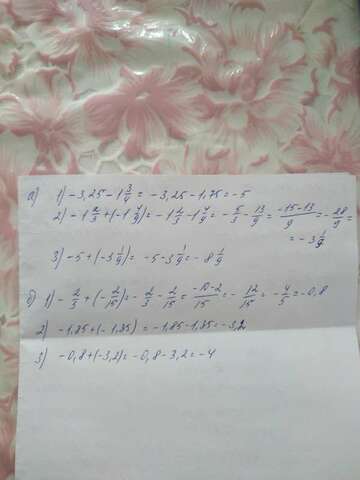 а) 1) -3,25-1 3/4 = -3,25-1,75=-5
2) -1 2/3 +(-1 4/9)= -1 2/3 -1 4/9 = -5/3 - 13/9 = (-15-13)/9 = -28/9 =
= -3 1/9
3) -5+(-3 1/9)= -5-3 1/9 = -8 1/9
б) 1) -2/3 +(-2/15)= -2/3 - 2/15 = (-10-2)/15 = -12/15 = -4/5 =-0,8
2) -1,85+(-1,35) =-1,85-1,35=-3,2
3) -0,8+(-3,2)=-0,8-3,2=-4